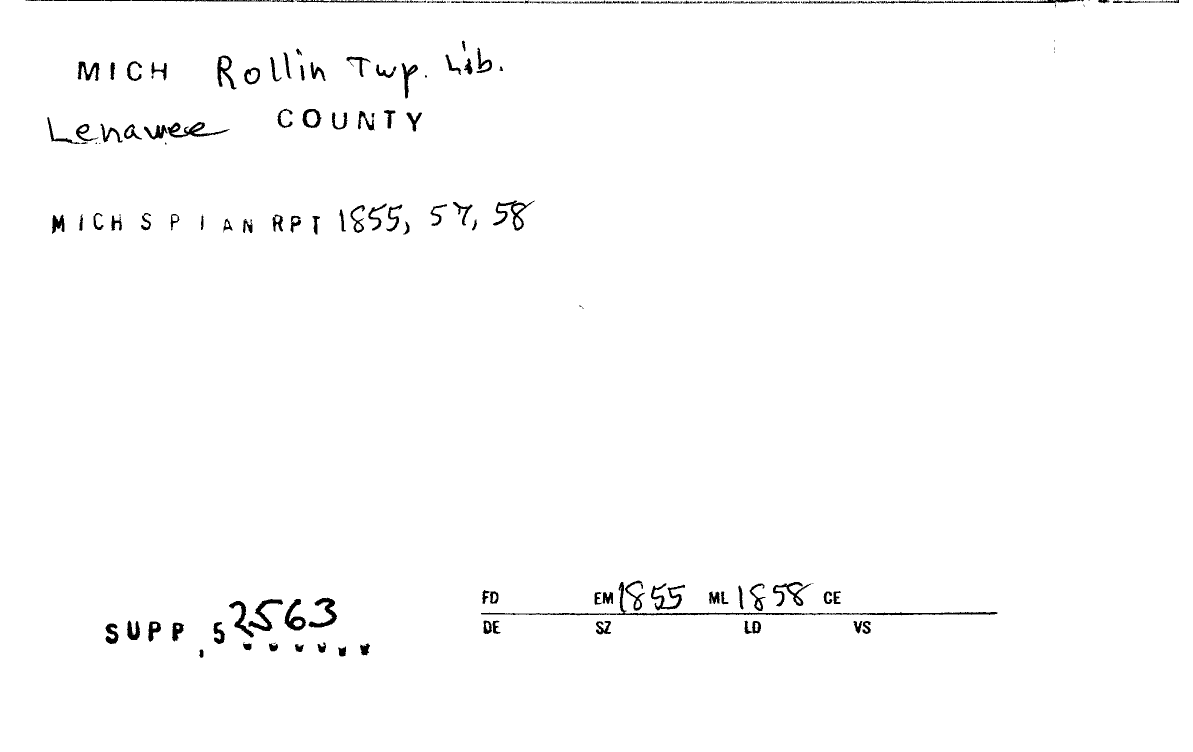 MICH Rollin Twp. Lib.
Lenawee COUNTY
MICH S P I AN RPT 1855, 57, 58
SUPP. 52563
FD EM 1855 ML 1858 CE
DE SZ LD VS